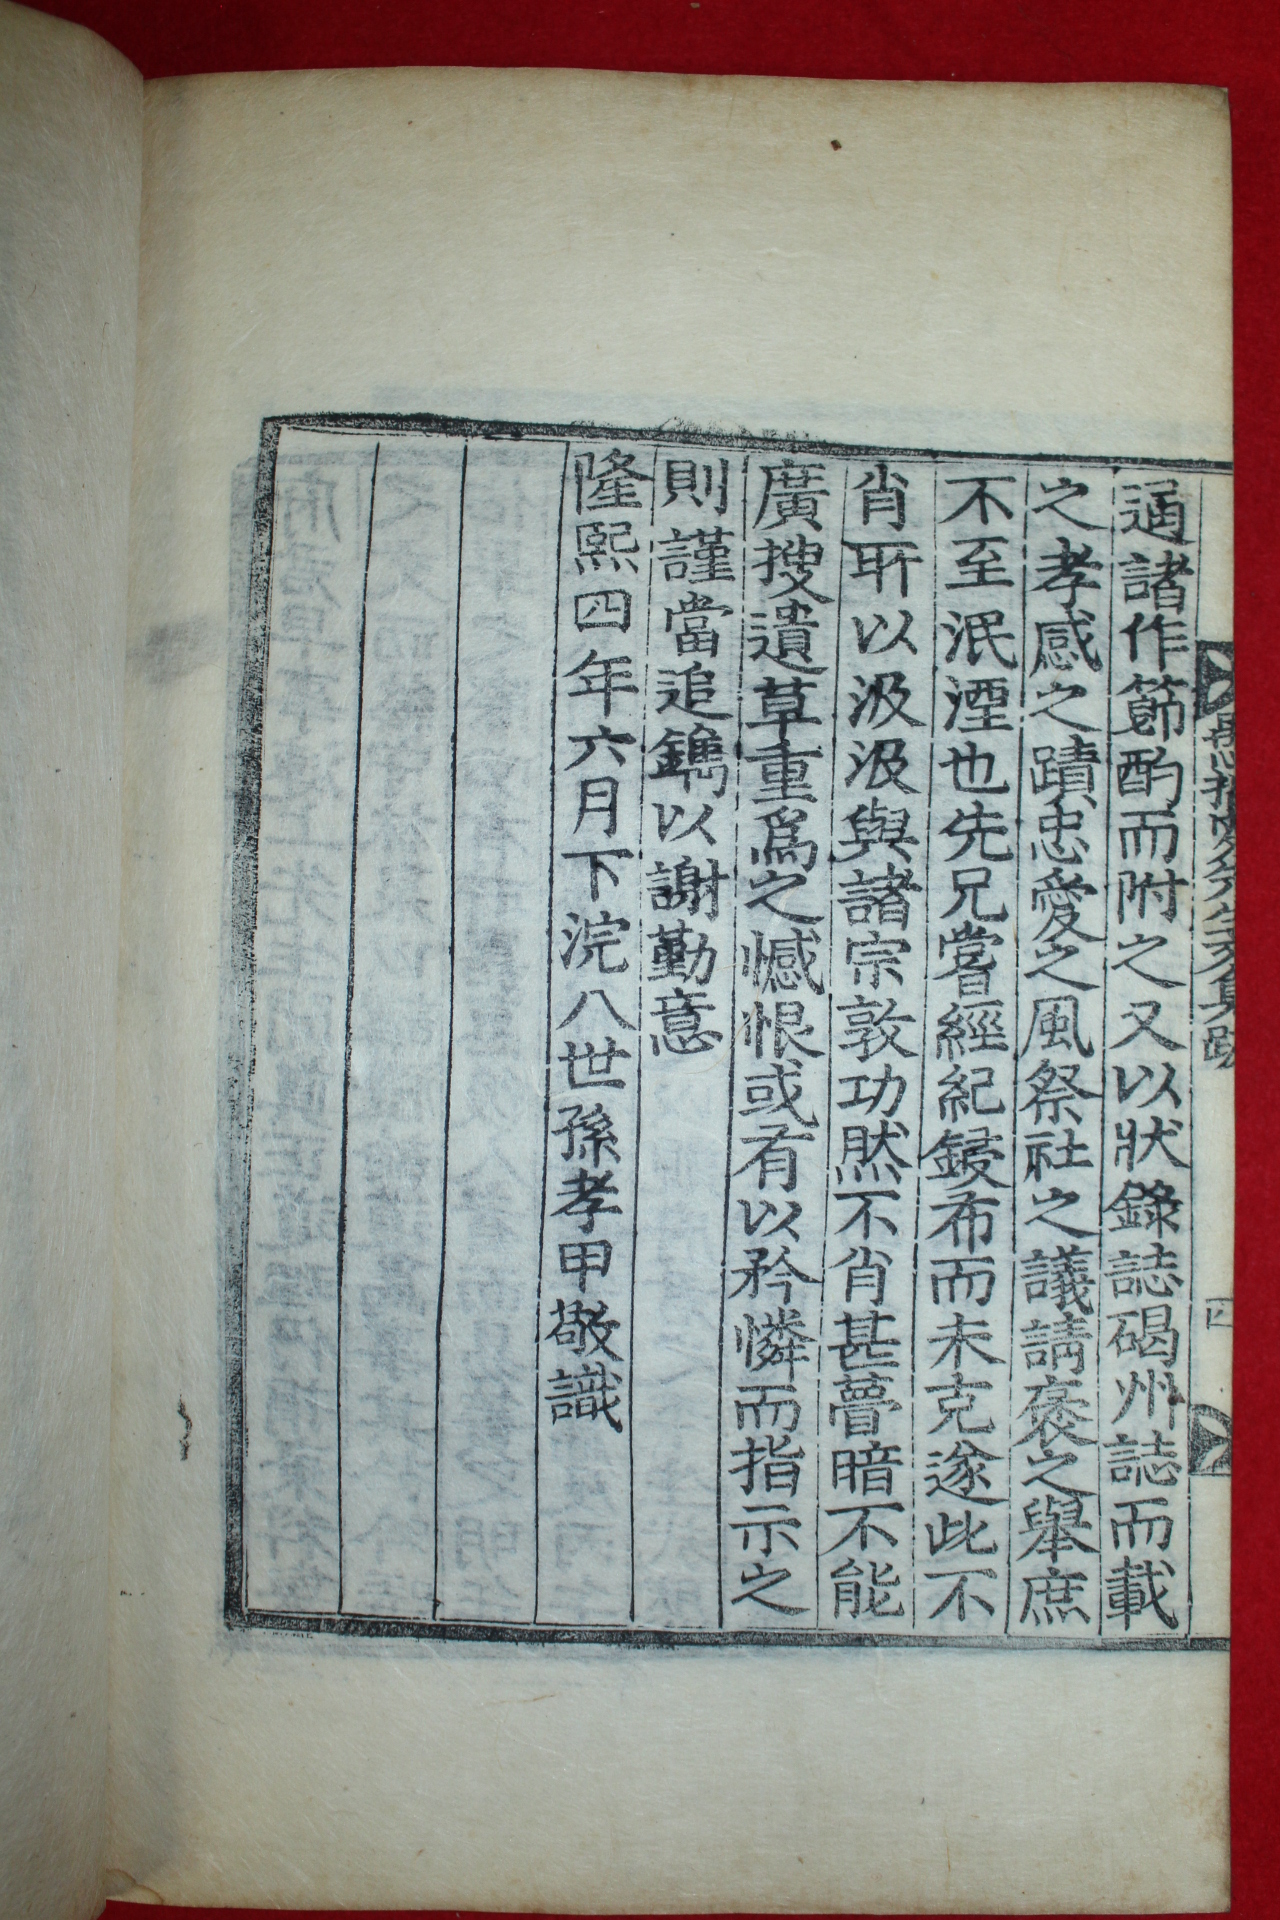 通諸作節酌而附之又以狀錄誌碣州誌而載
之孝感之蹟忠愛之風祭社之議請褒之擧庶
不至泯湮也先兄嘗經紀鋟布而未克遂此不
肖所以汲汲與諸宗敦功然不肖甚瞢暗不能
廣搜遺草重爲之憾恨或有以矜憐而指示之
則謹當追鐫以謝勤意
隆熙四年六月下浣八世孫孝甲敬識